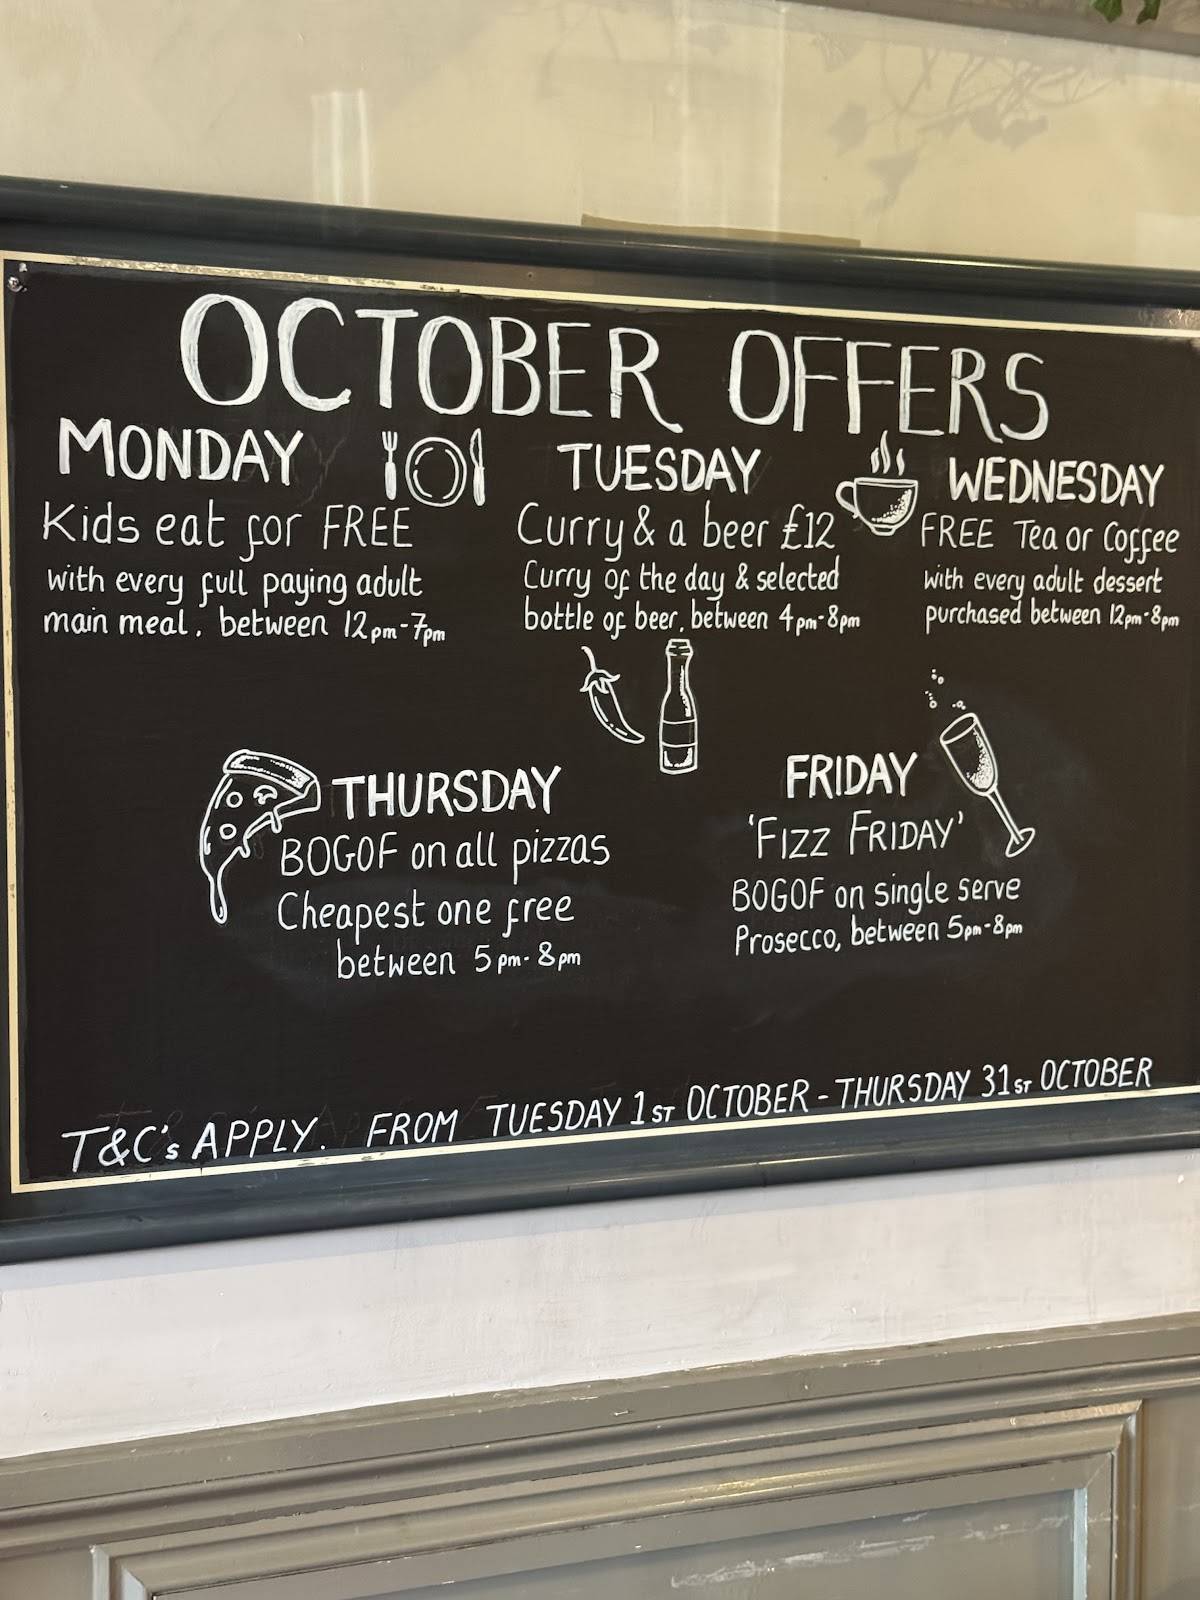 OCTOBER OFFERS
MONDAY
Kids eat for FREE
with every full paying adult
main meal. between 12pm-7pm
TUESDAY
Curry & a beer £12
Curry of the day & selected
bottle of beer, between 4pm-8pm
WEDNESDAY
FREE Tea or Coffee
with every adult dessert
purchased between 12pm-8pm
THURSDAY
BOGOF on all pizzas
Cheapest one free
between 5pm-8pm
FRIDAY
'FIZZ FRIDAY'
BOGOF on single serve
Prosecco, between 5pm-8pm
T&C's APPLY. FROM TUESDAY 1ST OCTOBER - THURSDAY 31ST OCTOBER